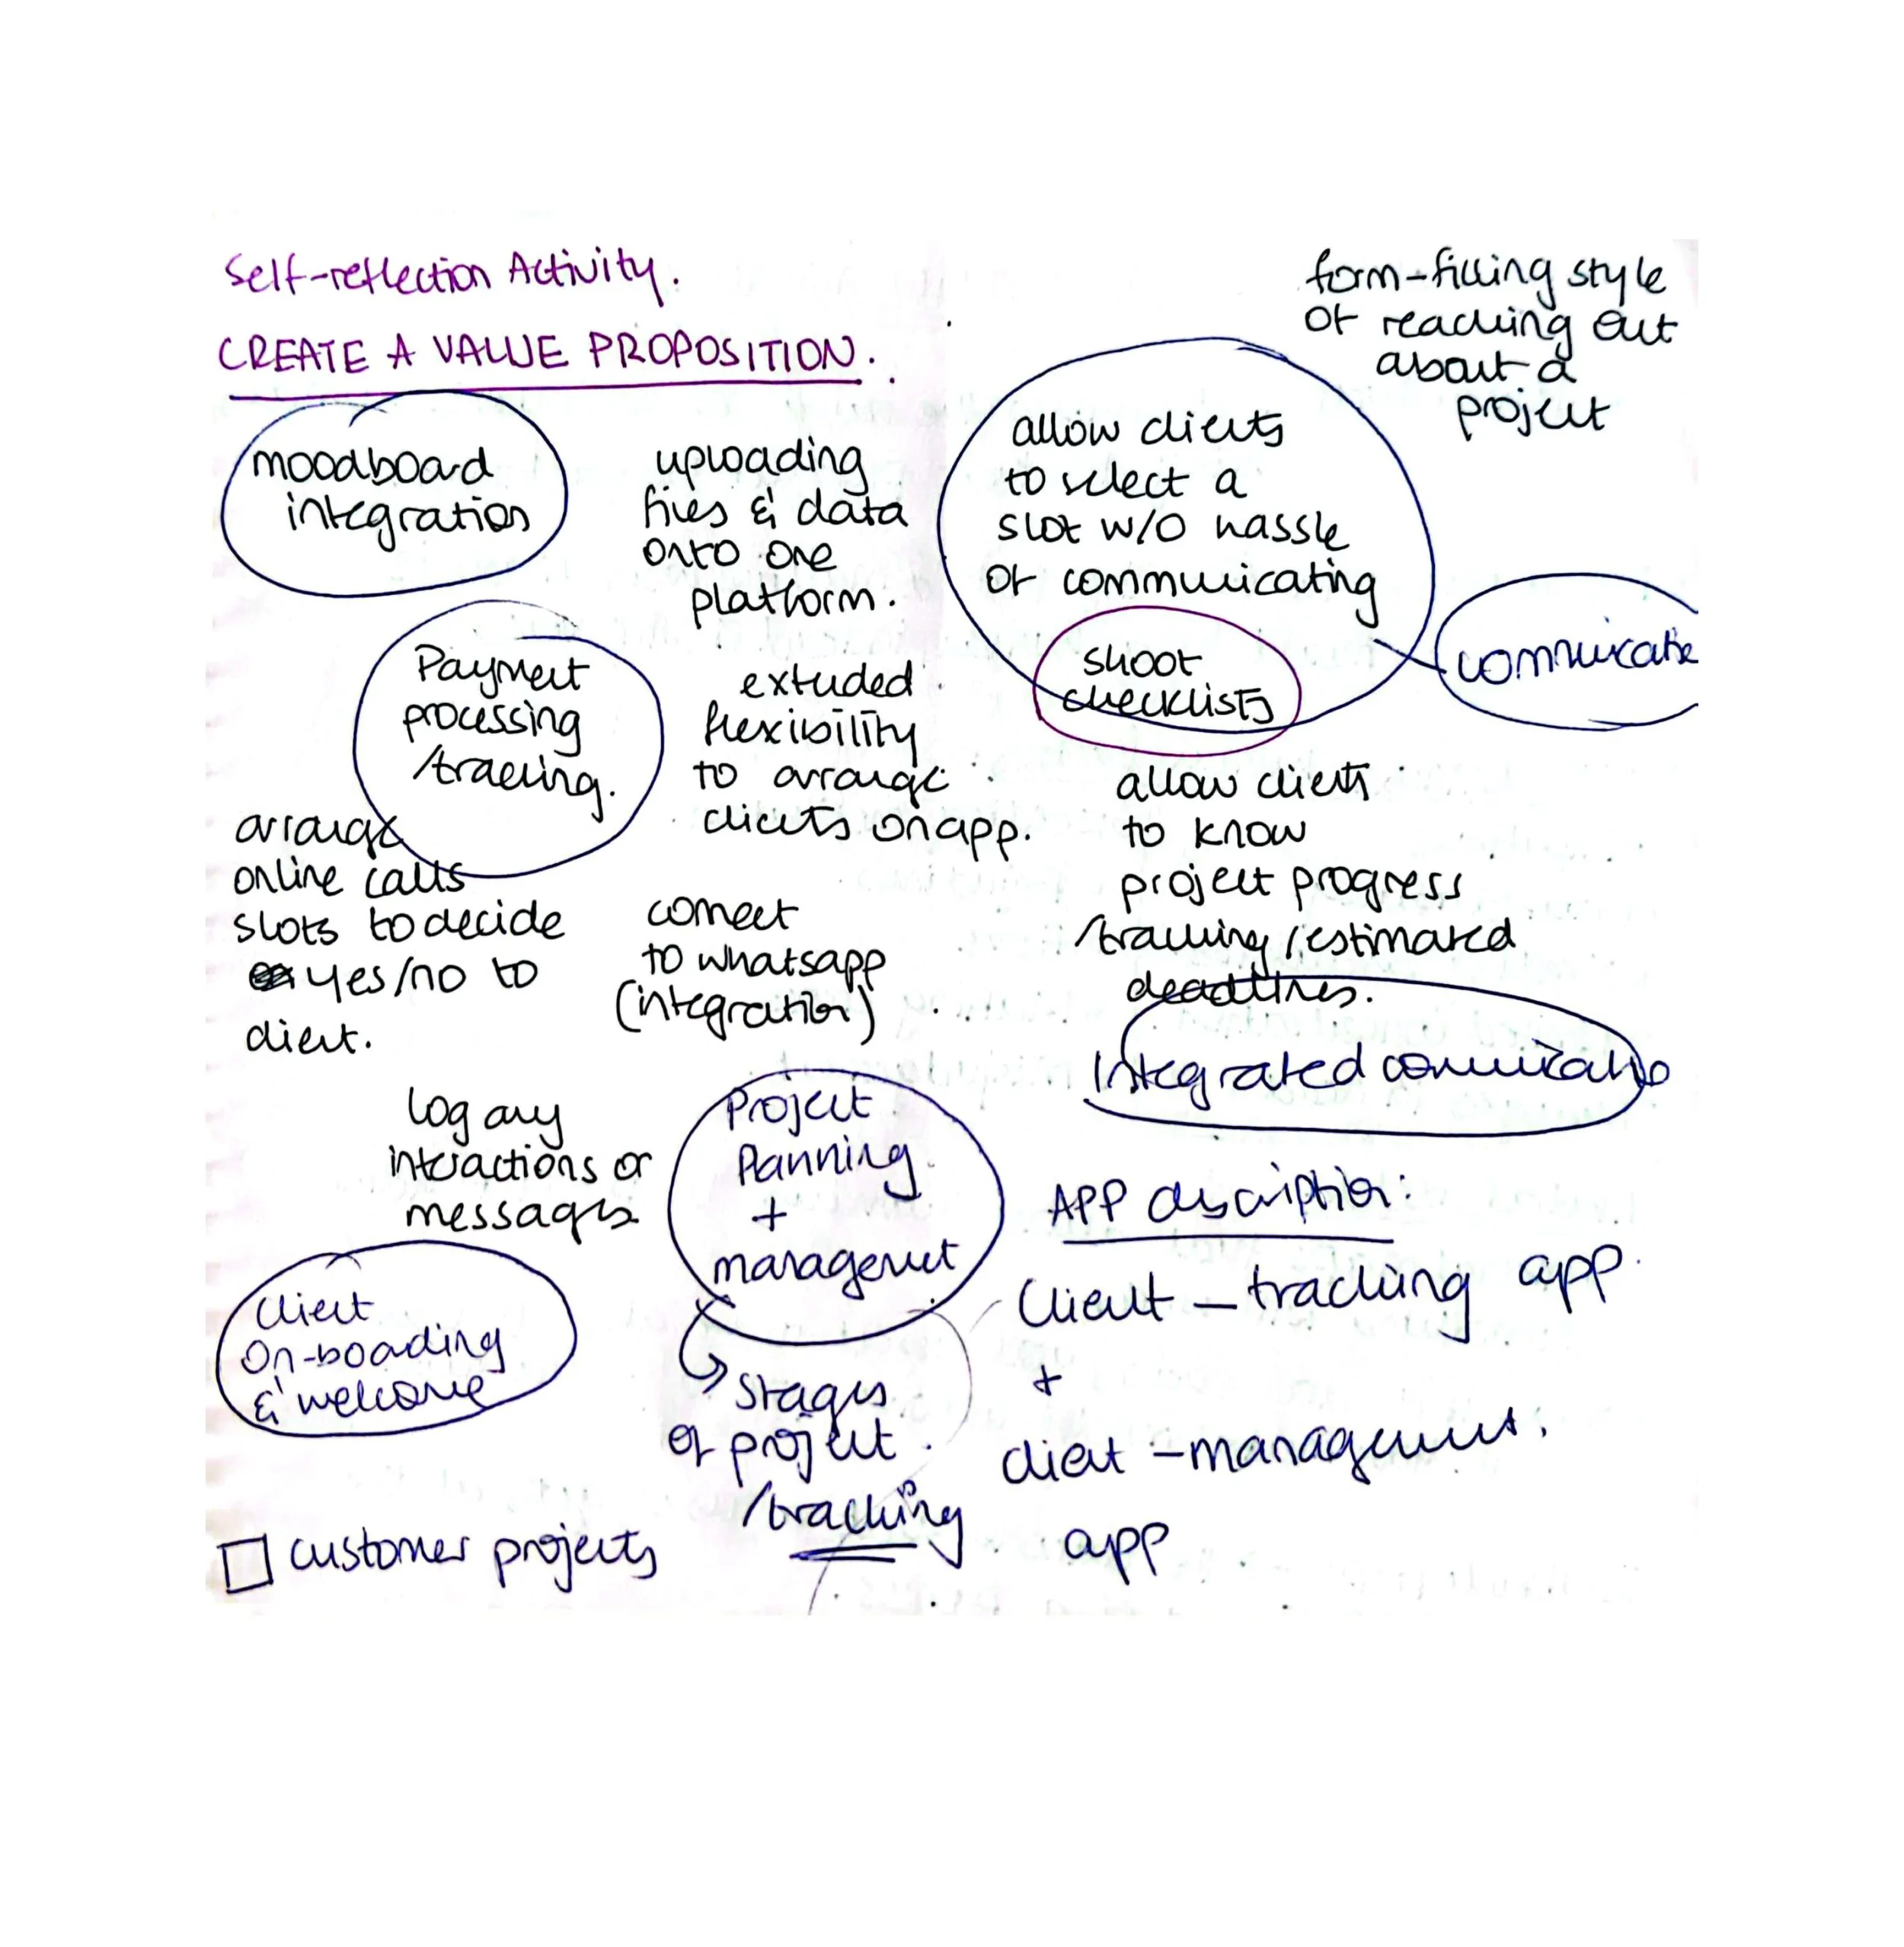 Self-reflection Activity.
CREATE A VALUE PROPOSITION.
form-filling style
of reaching out
about a
project
moodboard
integration
uploading
files & data
onto one
platform.
allow clients
to select a
slot w/o hassle
of communicating
communicate
shoot
checklists
Payment
processing
/tracking.
extended
flexibility
to arrange
clients on app.
allow clients
to know
project progress
/tracking/estimated
deadlines.
arrange
online calls
slots to decide
yes/no to
client.
connect
to whatsapp
(integration)
Integrated
log any
interactions or
messages
Project
Planning
+
management
stages
of project
/tracking
Client
On-boading
& welcome
APP description:
Client - tracking app.
+
client - management.
app
customer projects